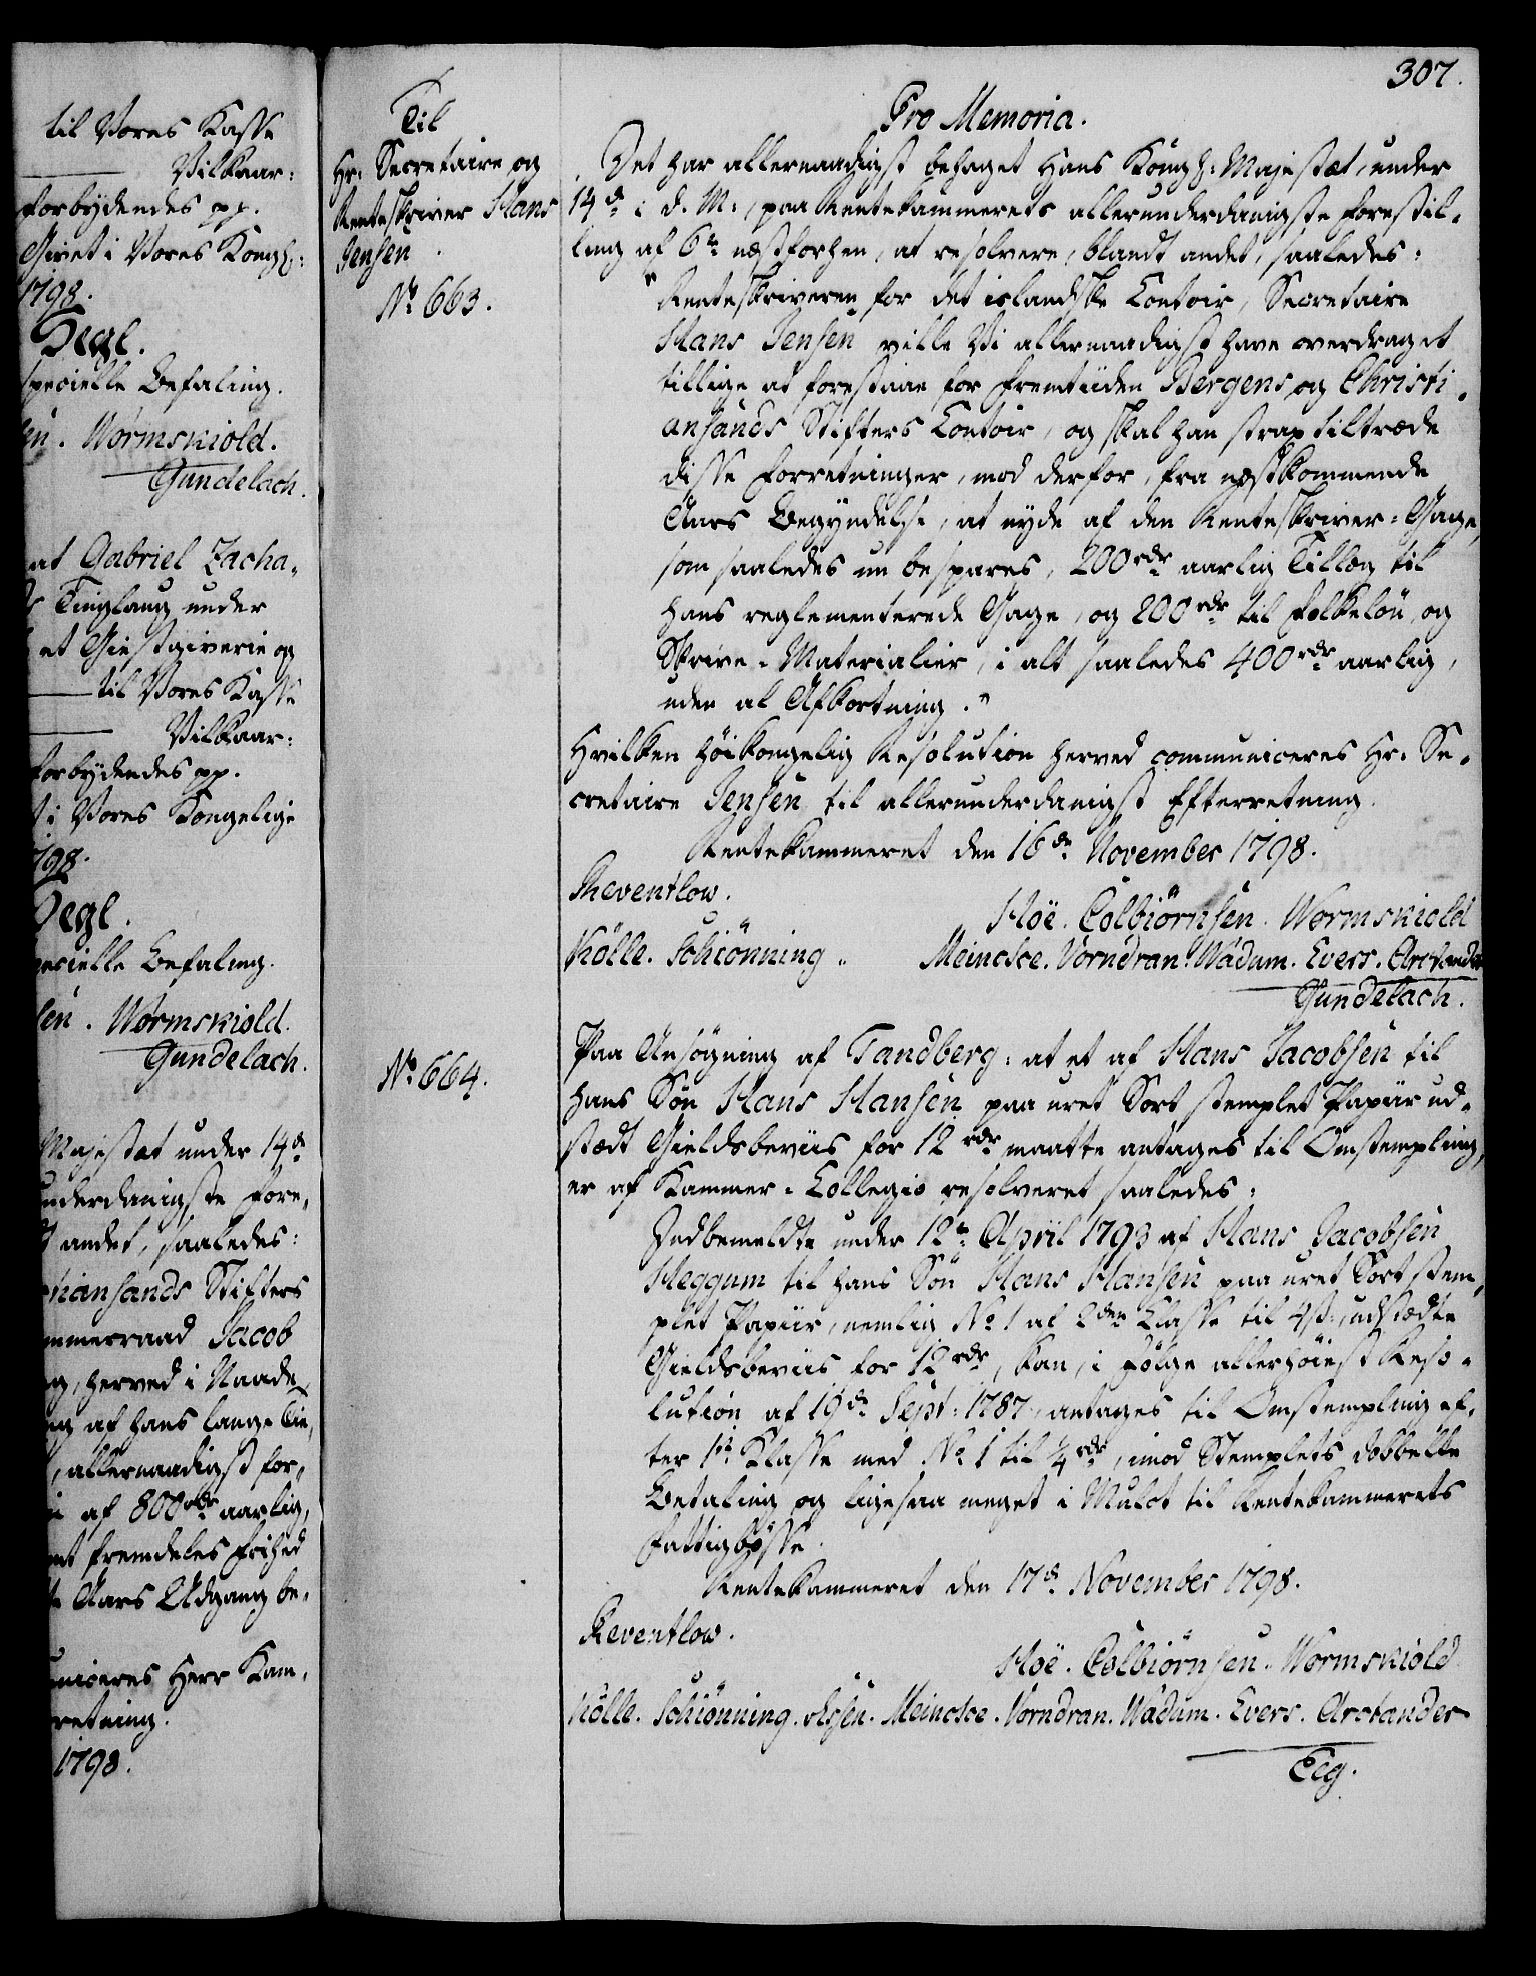 til Vores Kasse
Vilkaar:
forbydendes pp.
Givet i Vores Kongl:
1798.
Segl.
specielle Befaling.
sen. Wormskiold.
Gundelach.
at Gabriel Zacha-
Tinglaug under
et Giestgiverie og
til Vores Kasse
Vilkaar:
forbydendes pp.
i Vores Kongelige
1798.
Segl.
specielle Befaling.
sen. Wormskiold.
Gundelach.
Majestæt under 14de
underdanigste Fore-
andet, saaledes:
stiansands Stifters
ammerraad Jacob
herved i Naade
af hans lange Tie-
allernaadigst for-
af 800 rdr aarlig,
fremdeles Frihed
Aars Udgang be-
uniceres Herr Kam-
retning.
1798.
307.
Til
Hr. Secretaire og
Renteskriver Hans
Jensen
No. 663.
Pro Memoria.
Det har allernaadigst behaget Hans Kongl: Majestæt, under
14de i d. M:, paa Rentekammerets allerunderdanigste Forestil-
ling af 6te næstforhen, at resolvere, blandt andet, saaledes:
"Renteskriveren for det islandske Contoir, Secretaire
Hans Jensen ville Vi allernaadigst have overdraget
tillige at forestaae for Fremtiiden Bergens og Christi-
ansands Stifters Contoir, og skal han strax tiltræde
disse Forretninger, mod derfor, fra næstkommende
Aars Begyndelse, at nyde af den Renteskriver-Gage,
som saaledes nu bespares, 200 rdr aarlig Tillæg til
hans reglementerede Gage, og 200 rdr til Folkeløn og
Skrive-Materialier, i alt saaledes 400 rdr aarlig,
uden al Afkortning."
Hvilken høikongelig Resolution herved communiceres Hr. Se-
cretaire Jensen til allerunderdanigst Efterretning.
Rentekammeret den 16de November 1798.
Reventlow.
Hoë. Colbiörnsen. Wormskiold
Kölle. Schiönning. Meincke. Vorndran. Wadum. Evers. Arctander
Gundelach.
No. 664.
Paa Ansøgning af Tandberg: at et af Hans Jacobsen til
hans Søn Hans Hansen paa uret Sort stemplet Papiir ud-
stædt Gieldsbeviis for 12 rdr maatte antages til Omstempling,
er af Kammer-Collegio resolveret saaledes:
Indbemeldte under 12te April 1793 af Hans Jacobsen
Heggum til hans Søn Hans Hansen paa uret Sort stem-
plet Papiir, nemlig No. 1 af 2den Classe til 4 ß. udstædte
Gieldsbeviis for 12 rdr, kan, i Følge allerhøieste Reso-
lution af 19de Sept: 1787, antages til Omstempling ef-
ter 1ste Klasse med No. 1 til 1/4 rdr, imod Stemplets dobbelte
Betaling og ligesaa meget i Mulct til Rentekammerets
Fattigbøsse.
Rentekammeret den 17de November 1798.
Reventlow.
Hoë. Colbiörnsen. Wormskiold.
Kölle. Schiönning. Meincke. Vorndran. Wadum. Evers. Arctander